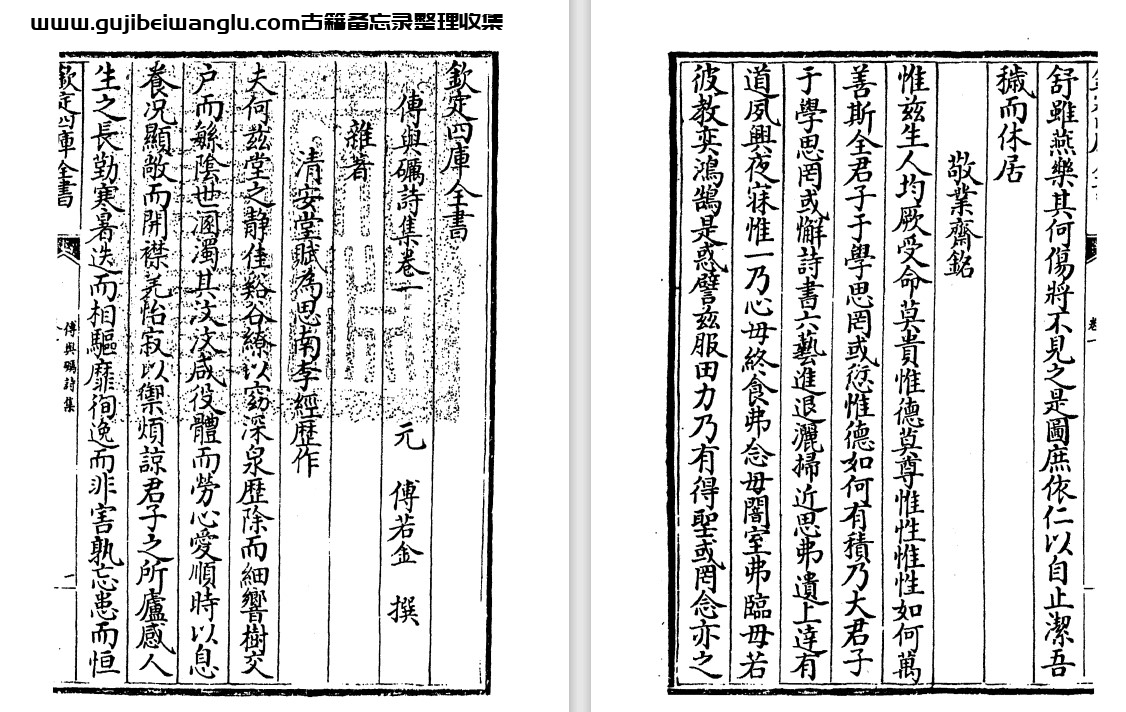 www.gujibeiwanglu.com古籍备忘录整理收集
欽定四庫全書
傅與礪詩集卷一
元 傅若金 撰
雜著
清安堂賦為思南李經歴作
夫何兹堂之静佳谿谷繚以窈深泉歴除而細響樹交
户而緐隂世溷濁其汶汶咸役體而勞心愛順時以息
養况顯敞而開襟羌怡寂以禦煩諒君子之所廬感人
生之長勤寒暑迭而相驅靡徇逸而非害孰忘患而恒
欽定四庫全書
傅與礪詩集
卷一
一
舒雖燕樂其何傷將不見之是圖庶依仁以自止潔吾
穢而休居
敬業齋銘
惟兹生人均厥受命莫貴惟德莫尊惟性惟性如何萬
善斯全君子于學思罔或愆惟德如何有積乃大君子
于學思罔或懈詩書六藝進退灑掃近思弗遺上達有
道夙興夜寐惟一乃心毋終食弗念毋闇室弗臨毋若
彼教奕鴻鵠是惑譬兹服田力乃有得聖或罔念亦之